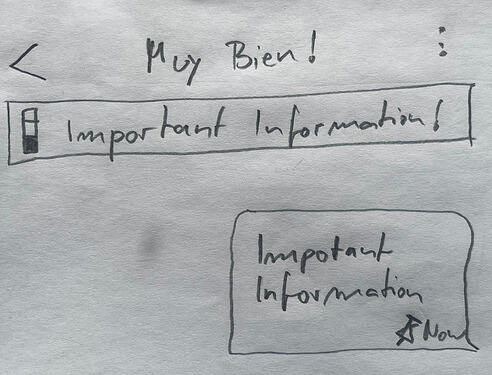 Muy Bien!
Important Information!
Impotant
Information
Now